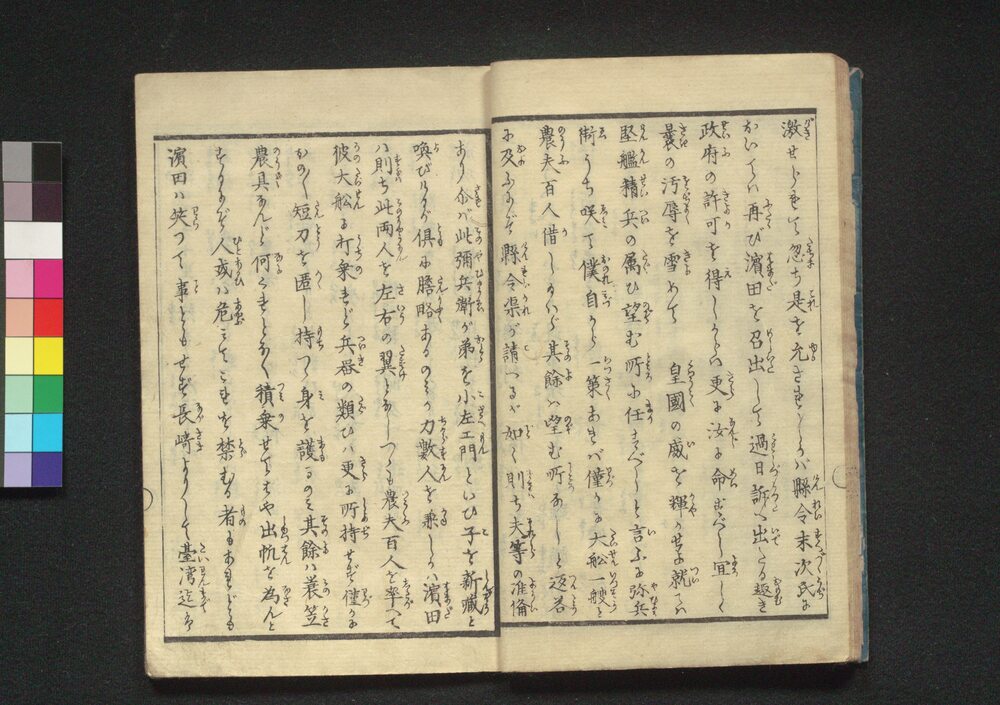 激せられて忽ち是を允されしかバ縣令末次氏に
おいてハ再び濱田を召出して過日訴へ出たる趣き
政府の許可を得しからハ更に汝に命ずべし宜しく
曩の汚辱を雪めて 皇國の威を輝かせよ就てハ
堅艦精兵の属ひ望む所に任すべしと言ふに弥兵
衛うち咲て僕自から一策あれバ僅かに大船一艘と
農夫百人借しなバ其餘ハ望む所なしと返答
に及ふにぞ縣令渠が請へるが如く則ち夫等の准備
あり尓バ此彌兵衛が弟を小左エ門といひ子を新蔵と
喚びけるが倶に膽略あるのミか力數人を兼しかバ濱田
ハ則ち此両人を左右の翼となしつゝも農夫百人を率へて
彼大船に打乗れど兵器の類ひハ更に所持せず僅かに
おの〳〵短刀を匿し持つ身を護るのミ其餘ハ蓑笠
農具なんど何くれとなく積乗せてはや出帆を為んと
するにぞ人或ハ危ミてこれを禁むる者もあれども
濱田ハ笑つて事ともせず長崎よりして臺湾迄ハ